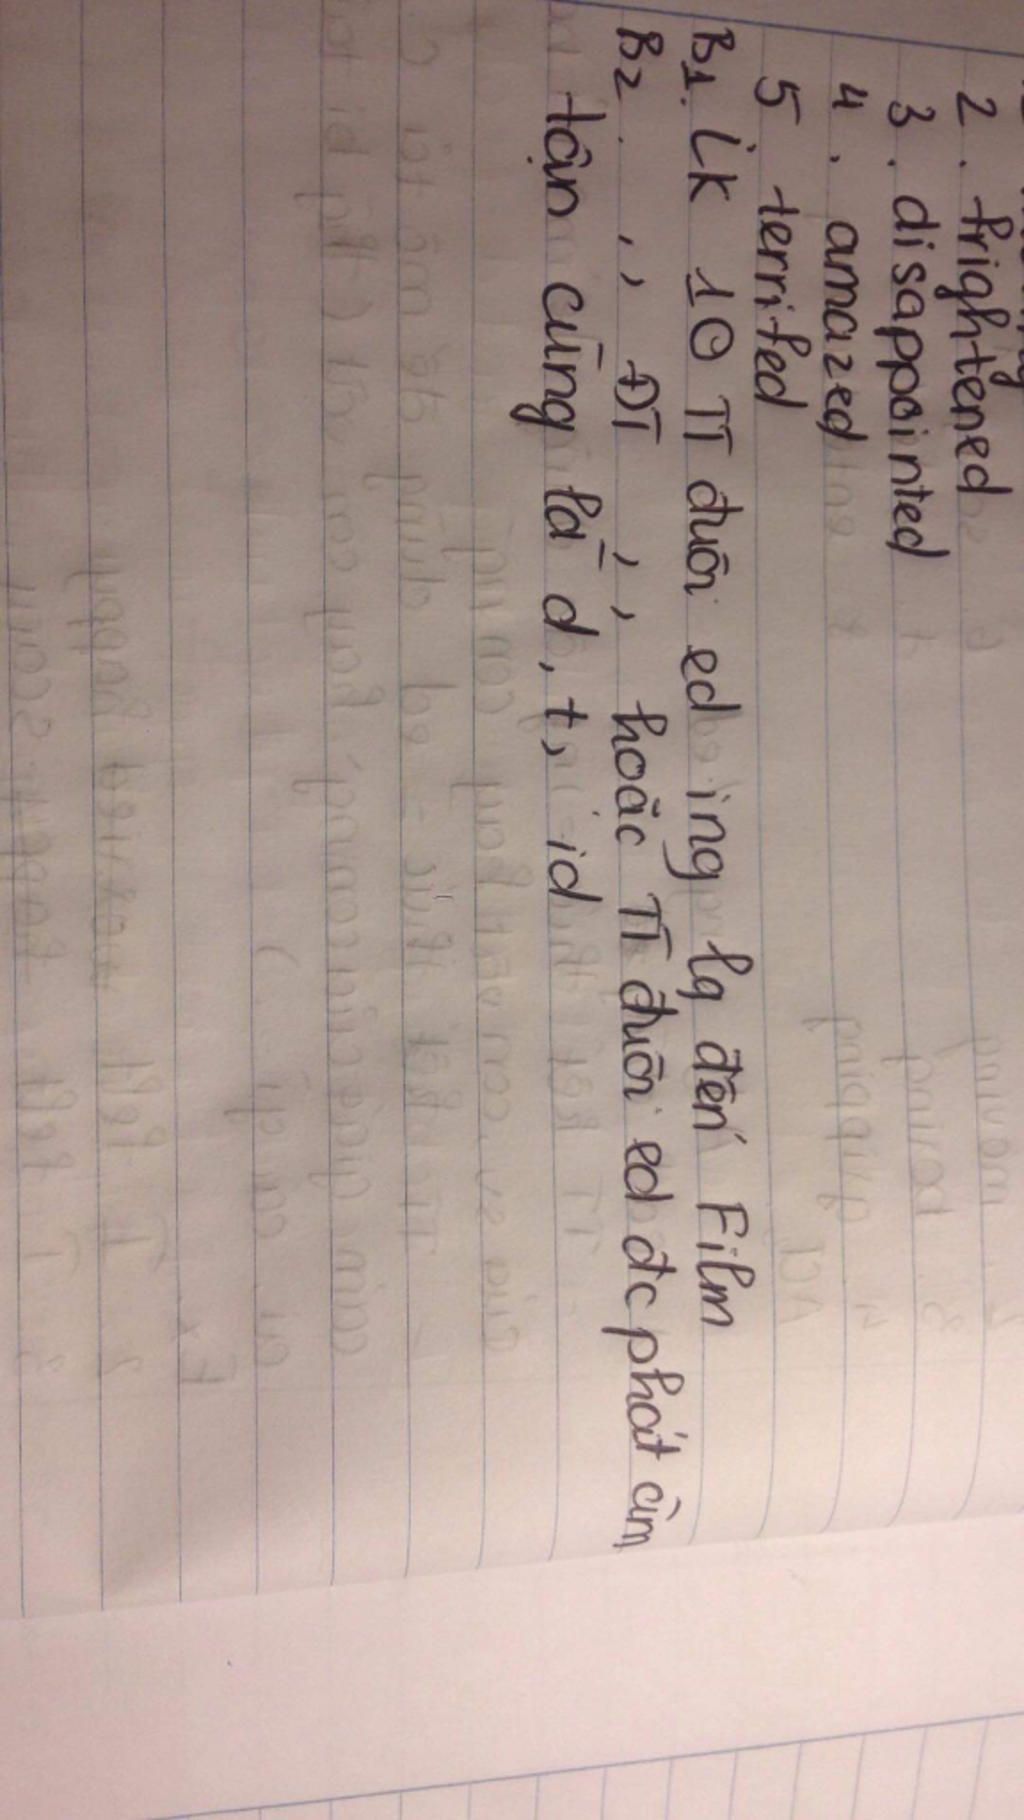 2. frightened
3. disappointed
4. amazed
5 terrifed
B1. Lk 10 TT đuôi ed ing lq đến Film
B2. ,, ĐT ,, hoặc TT đuôi ed đc phát âm
tận cùng là d, t, id